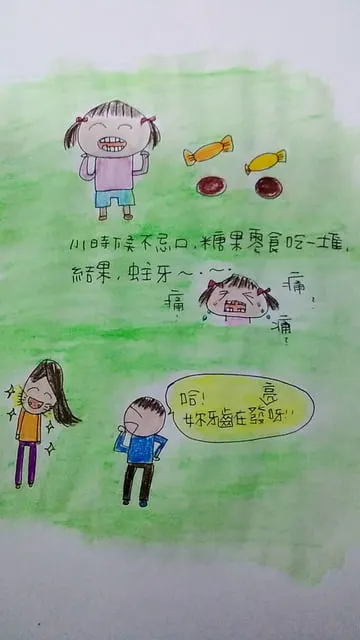 小時候不忌口，糖果零食吃一堆，
結果，蛀牙～．～．
痛！
痛！
痛！
哈！
妳牙齒在發亮呀！！